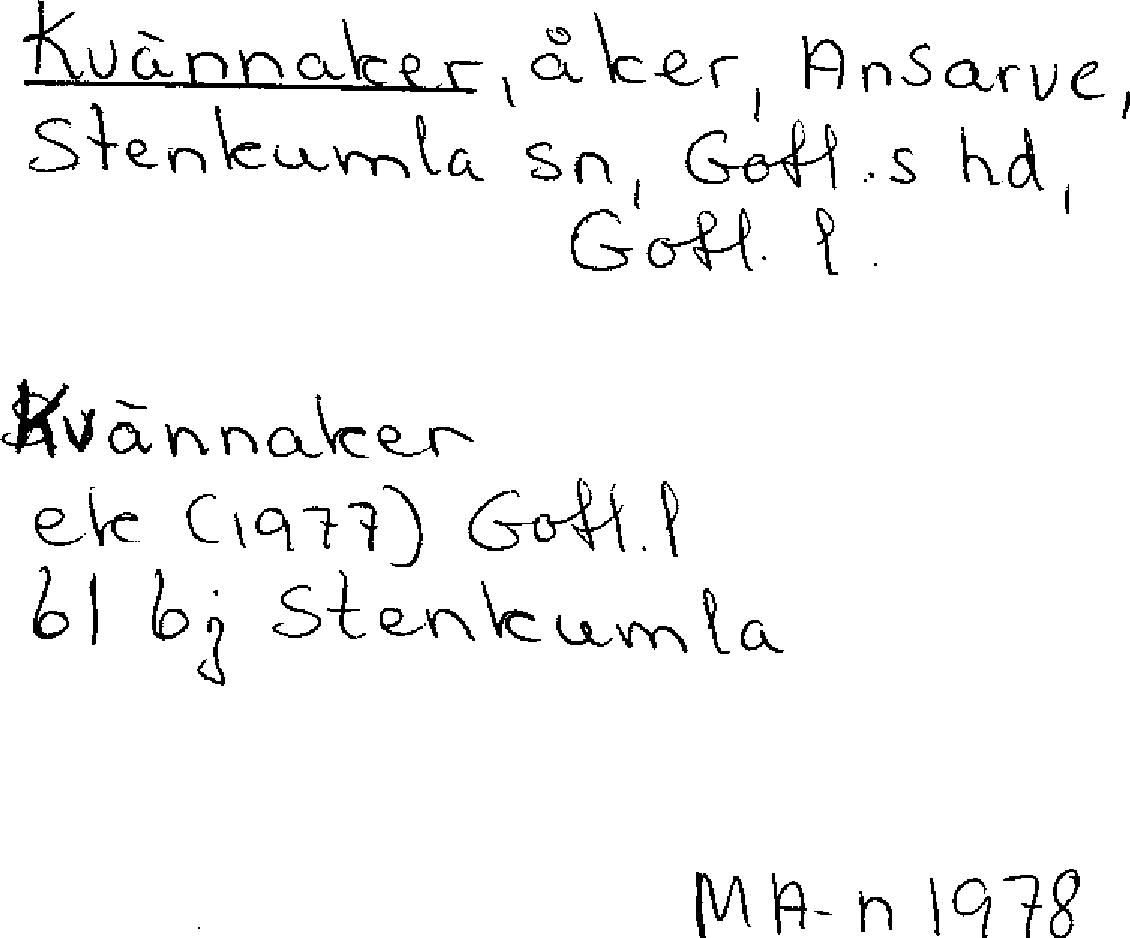 Kvännaker, åker, Ansarve,
Stenkumla sn, Gotl.s hd,
Gotl. l.
Kvännaker
ek (1977) Gotl. l
bl bj Stenkumla
MA-n 1978